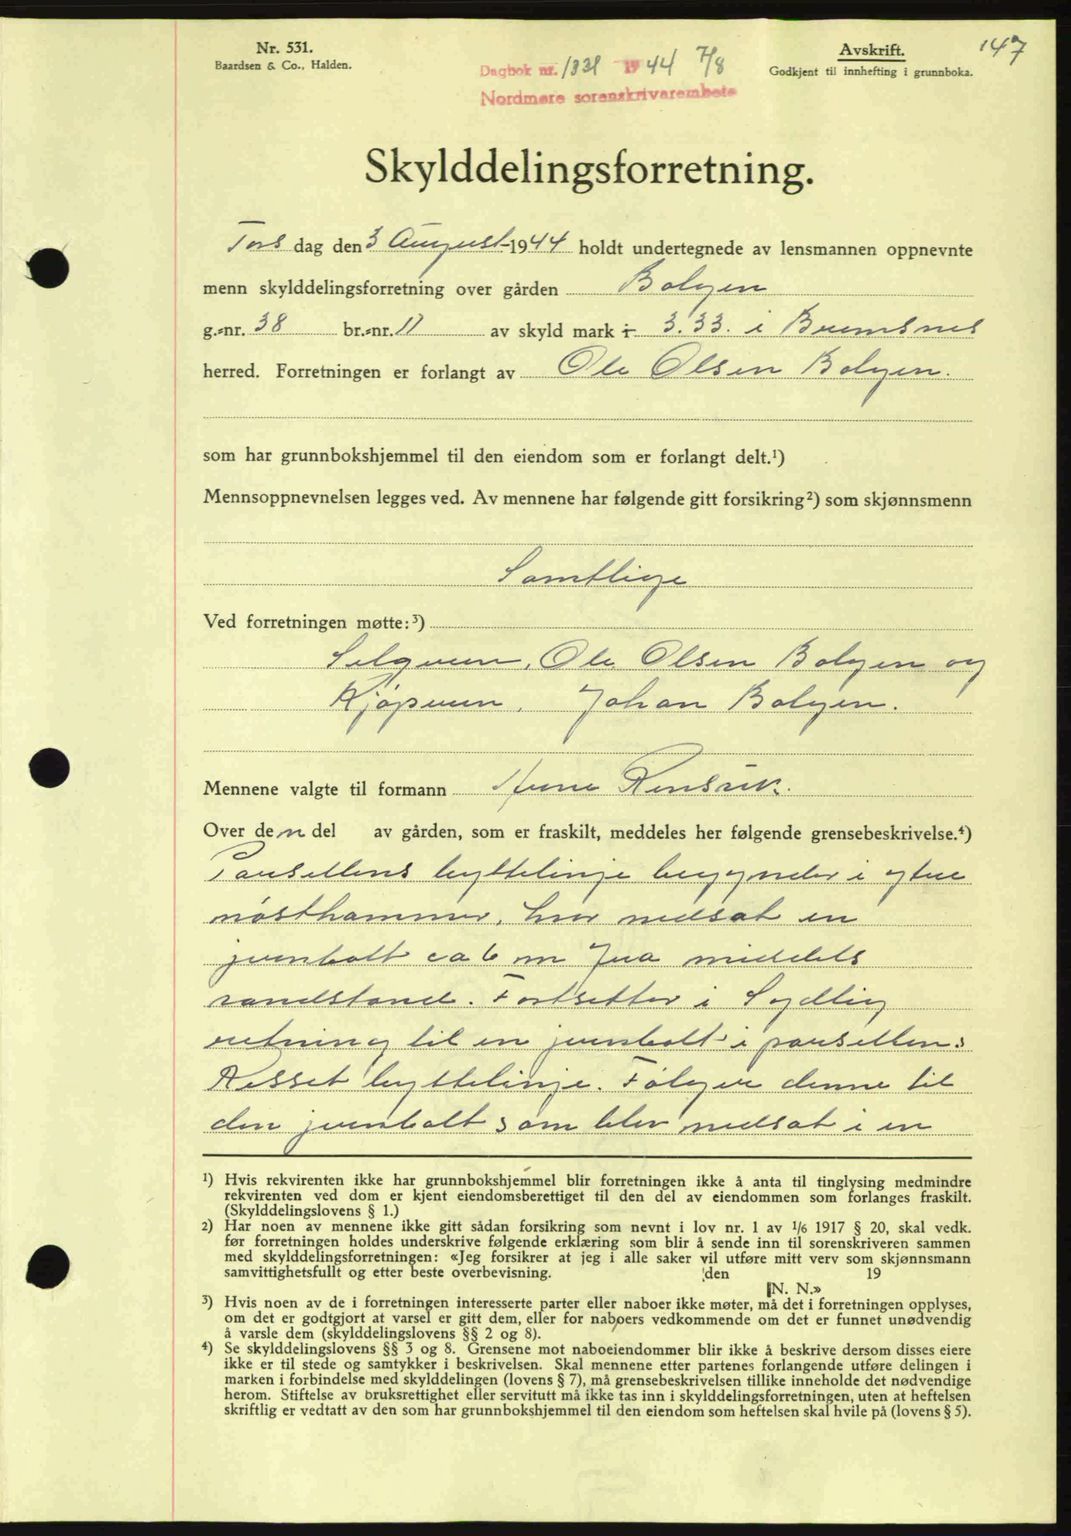 Nr. 531.
Baardsen & Co., Halden.
Dagbok nr. 1331 1944 7/8
Nordmøre sorenskriverembete
Avskrift.
Godkjent til innhefting i grunnboka.
147
Skylddelingsforretning.
Tors dag den 3 August 1944 holdt undertegnede av lensmannen oppnevnte
menn skylddelingsforretning over gården Bolgen
g.-nr. 38 br.-nr. 11 av skyld mark 3.33. i Bremsnes
herred. Forretningen er forlangt av Ole Olsen Bolgen.
som har grunnbokshjemmel til den eiendom som er forlangt delt.¹)
Mennsoppnevnelsen legges ved. Av mennene har følgende gitt forsikring²) som skjønnsmenn
Samtlige
Ved forretningen møtte:³)
Selgeren, Ole Olsen Bolgen og
Kjøperen, Johan Bolgen.
Mennene valgte til formann Rensvik.
Over den del av gården, som er fraskilt, meddeles her følgende grensebeskrivelse.⁴)
Parsellens byttelinje begynder i ytre
nøsthammer, hvor nedsat en
jernbolt ca 6 m fra middels
vandstand. Fortsetter i Sydlig
retning til en jernbolt i parsellens
Resset byttelinje. Følger denne til
den jernbolt som blev nedsat i en
¹) Hvis rekvirenten ikke har grunnbokshjemmel blir forretningen ikke å anta til tinglysing medmindre
rekvirenten ved dom er kjent eiendomsberettiget til den del av eiendommen som forlanges fraskilt.
(Skylddelingslovens § 1.)
²) Har noen av mennene ikke gitt sådan forsikring som nevnt i lov nr. 1 av 1/6 1917 § 20, skal vedk.
før forretningen holdes underskrive følgende erklæring som blir å sende inn til sorenskriveren sammen
med skylddelingsforretningen: «Jeg forsikrer at jeg i alle saker vil utføre mitt verv som skjønnsmann
samvittighetsfullt og etter beste overbevisning. den 19
[N. N.»
³) Hvis noen av de i forretningen interesserte parter eller naboer ikke møter, må det i forretningen opplyses,
om det er godtgjort at varsel er gitt dem, eller for naboers vedkommende om det er funnet unødvendig
å varsle dem (skylddelingslovens §§ 2 og 8).
⁴) Se skylddelingslovens §§ 3 og 8. Grensene mot naboeiendommer blir ikke å beskrive dersom disses eiere
ikke er til stede og samtykker i beskrivelsen. Skal mennene etter partenes forlangende utføre delingen i
marken i forbindelse med skylddelingen (lovens § 7), må grensebeskrivelsen tillike inneholde det nødvendige
herom. Stiftelse av bruksrettighet eller servitutt må ikke tas inn i skylddelingsforretningen, uten at heftelsen
skriftlig er vedtatt av den som har grunnbokshjemmel til den eiendom som heftelsen skal hvile på (lovens § 5).